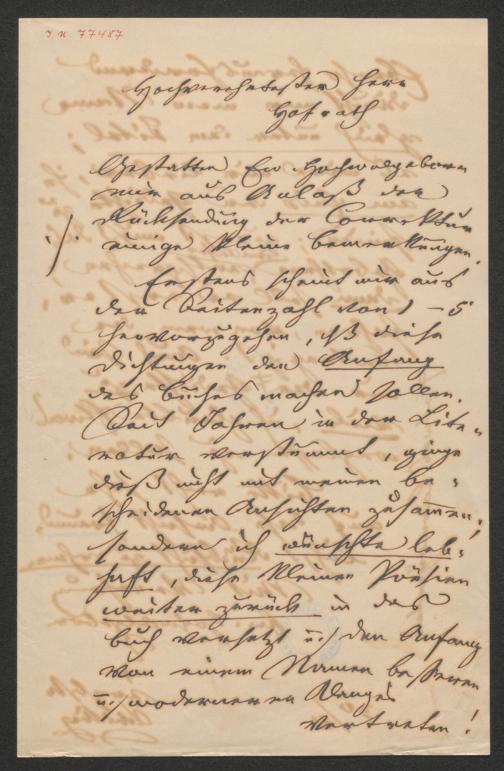 I. N. 77487
Hochverehrtester Herr
Hofrath
Gestatten Ew. Hochwolgeboren
mir aus Anlaß der
Rücksendung der Correktur
einige kleine Bemerkungen.
Erstens scheint mir aus
der Seitenzahl von 1 – 5
hervorzugehen, daß diese
Dichtungen den Anfang
des Buches machen sollen.
Seit Jahren in der Lite-
ratur verstummt, ginge
dieß nicht mit meinen be-
scheidenen Ansichten zusammen,
sondern ich wünschte leb-
haft, diese kleinen Poesien
weiter zurück in das
Buch versetzt u. den Anfang
von einem Namen besseren
u. moderneren Klanges
vertreten!